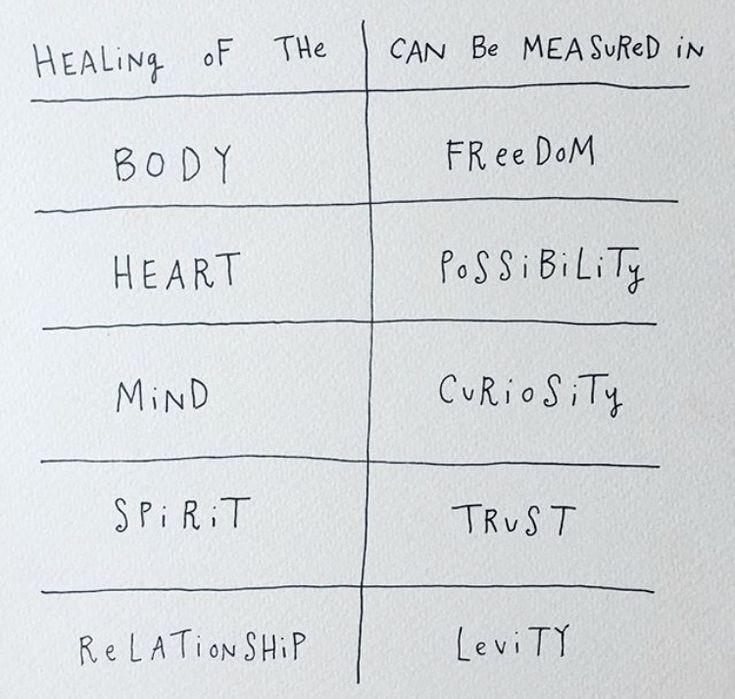 HEALing oF THe CAN Be MEASuReD iN
BODY FReeDoM
HEART PoSSiBiLiTy
MiND CuRioSiTy
SPiRiT TRuST
ReLATioNSHiP LeviTY